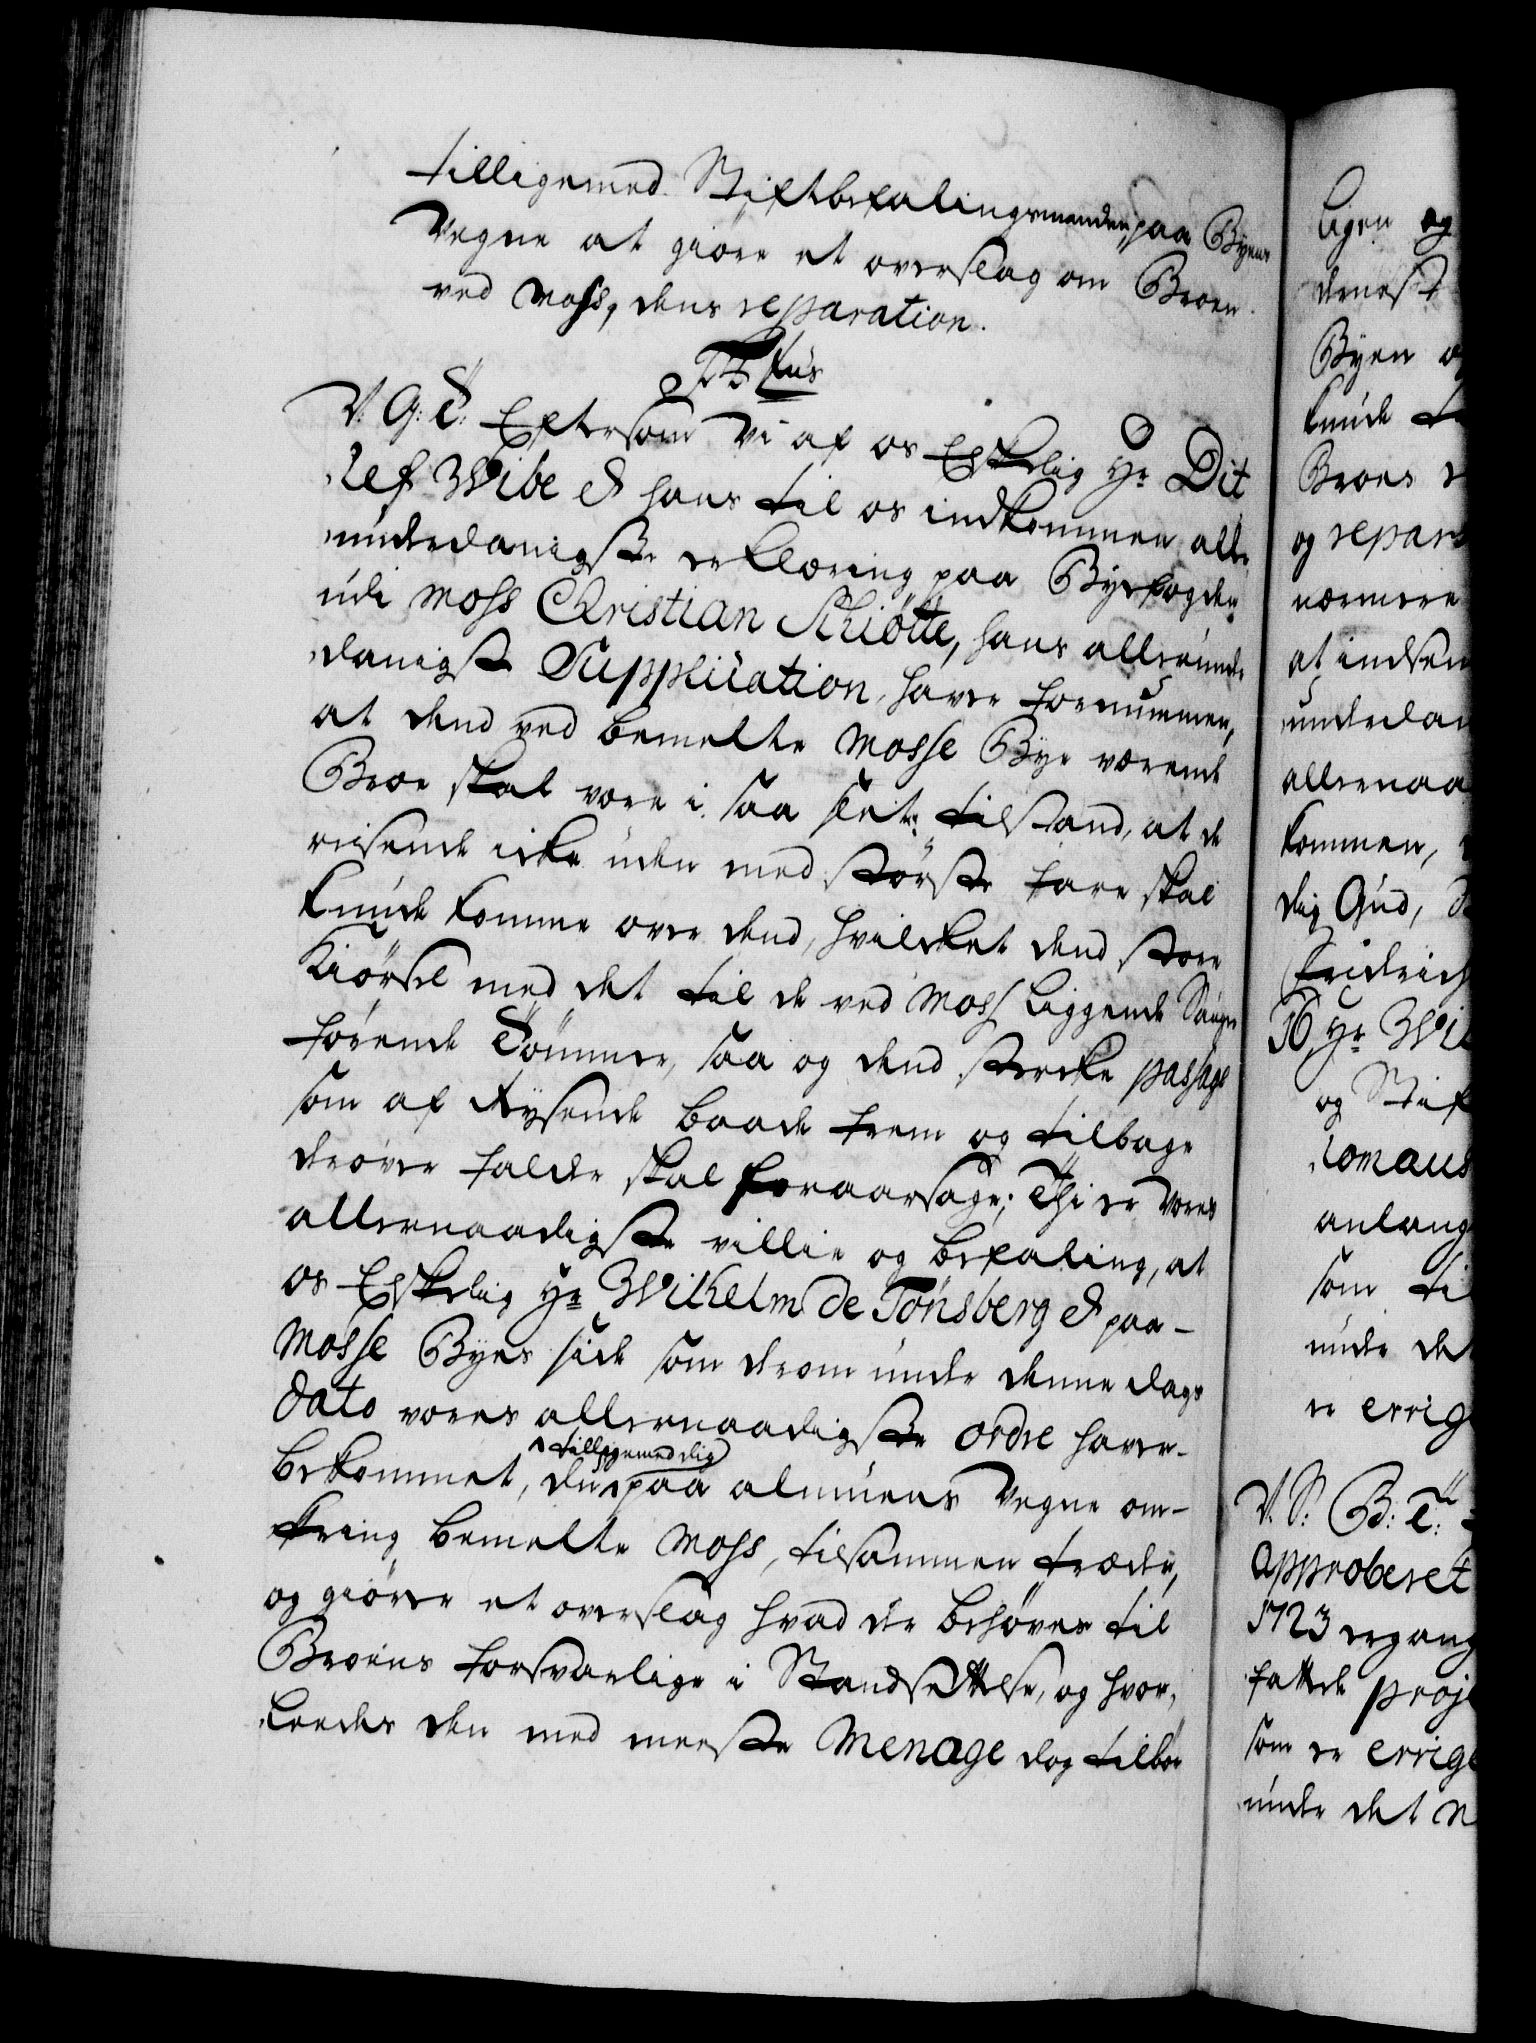 tilligemed Stiftbefalingsmanden, paa Byens
Vegne at giøre et overslag om Broen
ved Moss, dens reparation.
V. G: T: Eftersom Vi af os Elskelig Hr Dit
lef Wibe & hans til os indkommen aller
underdanigste erklæring paa Byefogden
udi Moss Christian Schiøtte, hans allerunder
danigst Supplication, haver fornummen,
at dend ved bemelte Mosse Bye værende
Broe skal være i saa slet tilstand, at de
reisende icke uden med største fare skal
kunde komme over dend, hvilcket dend store
Kiørsel med det til de ved Moss liggende Sauger
førende Tømmer, saa og dend stercke passage
som af Reysende baade frem og tilbage
derover falder skal foraarsage; Thi er vores
allernaadigste villie og befaling, at
os Elskelig Hr Wilhelm de Tønsberg & paa
Mosse Byes side som derom under denne dags
dato vores allernaadigste ordre haver
bekommet, du tilligemed dig paa almuens Vegne om-
kring bemelte Moss, tilsammen træder,
og giører et overslag hvad der behøves til
Broens forsvarlige i Standsettelse, og hvor,
ledes den med meeste Menage dog tilbør
ligen og
dernest
Byen
kunde
Broens
og repar
nærmere
at indsen
underdan
allernaa
kommen,
dig Gud,
Friderich
Hr Wi
og Stif
anlang
som til
under det
er errig
V. S: B: T:
Approberet
1723 ergang
fattede proje
som er errige
under det